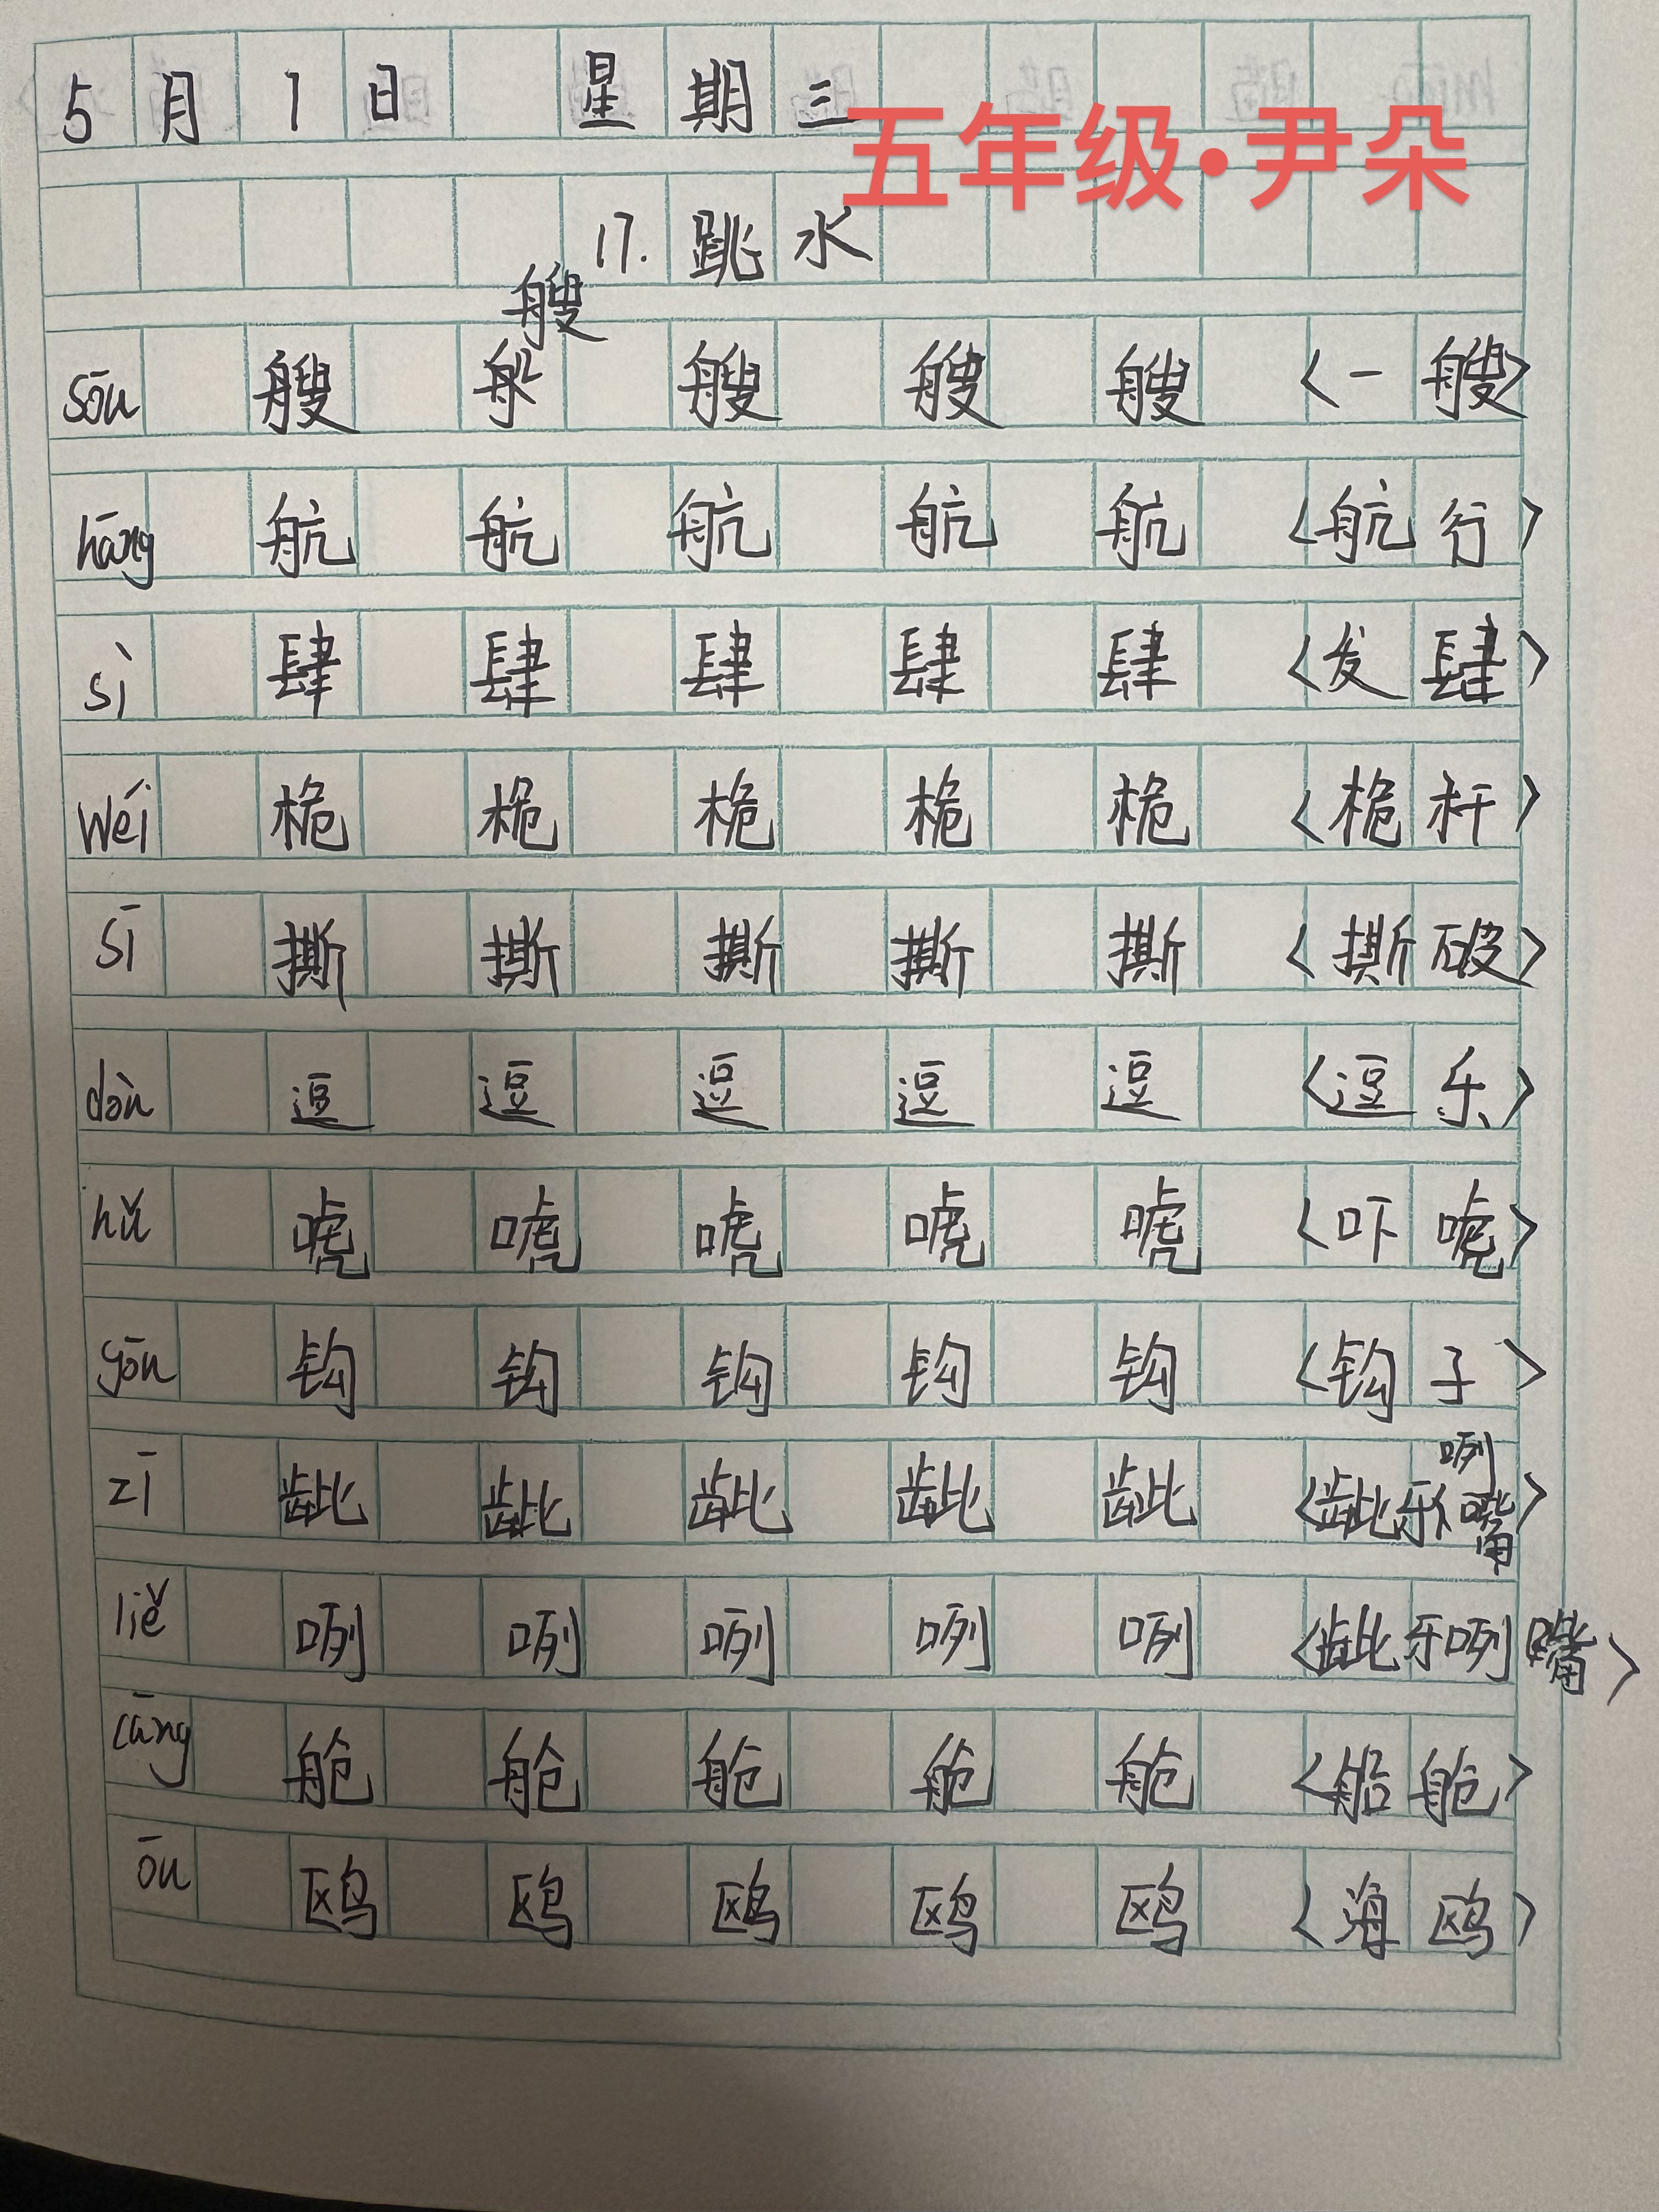 5月1日 星期三
五年级·尹朵
17.跳水
艘
sōu 艘 舩 艘 艘 艘 〈一艘〉
hāng 航 航 航 航 航 〈航行〉
sì 肆 肆 肆 肆 肆 〈发肆〉
wéi 桅 桅 桅 桅 桅 〈桅杆〉
sī 撕 撕 撕 撕 撕 〈撕破〉
dòu 逗 逗 逗 逗 逗 〈逗乐〉
hǔ 唬 唬 唬 唬 唬 〈吓唬〉
gōu 钩 钩 钩 钩 钩 〈钩子〉
zī 龇 龇 龇 龇 龇 〈龇牙咧嘴〉
liě 咧 咧 咧 咧 咧 〈龇牙咧嘴〉
cāng 舱 舱 舱 舱 舱 〈船舱〉
ōu 鸥 鸥 鸥 鸥 鸥 〈海鸥〉